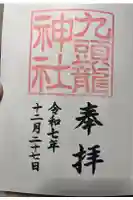 奉拝
九頭龍
神社
令和七年
十二月二十七日